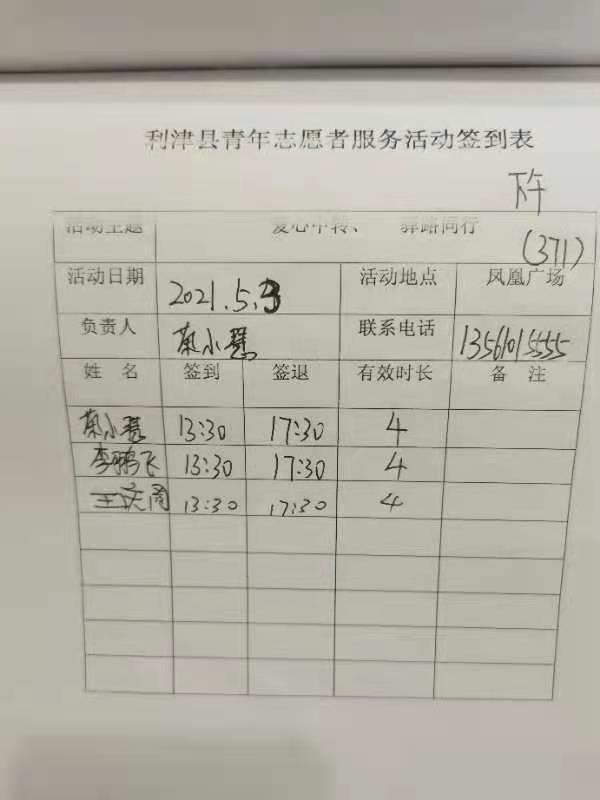 利津县青年志愿者服务活动签到表
下午
活动主题 爱心中转、 驿路同行
(371)
活动日期 2021.5.3 活动地点 凤凰广场
负责人 小慧 联系电话 13561015555
姓 名 签到 签退 有效时长 备 注
小慧 13:30 17:30 4
李鹏飞 13:30 17:30 4
王庆周 13:30 17:30 4